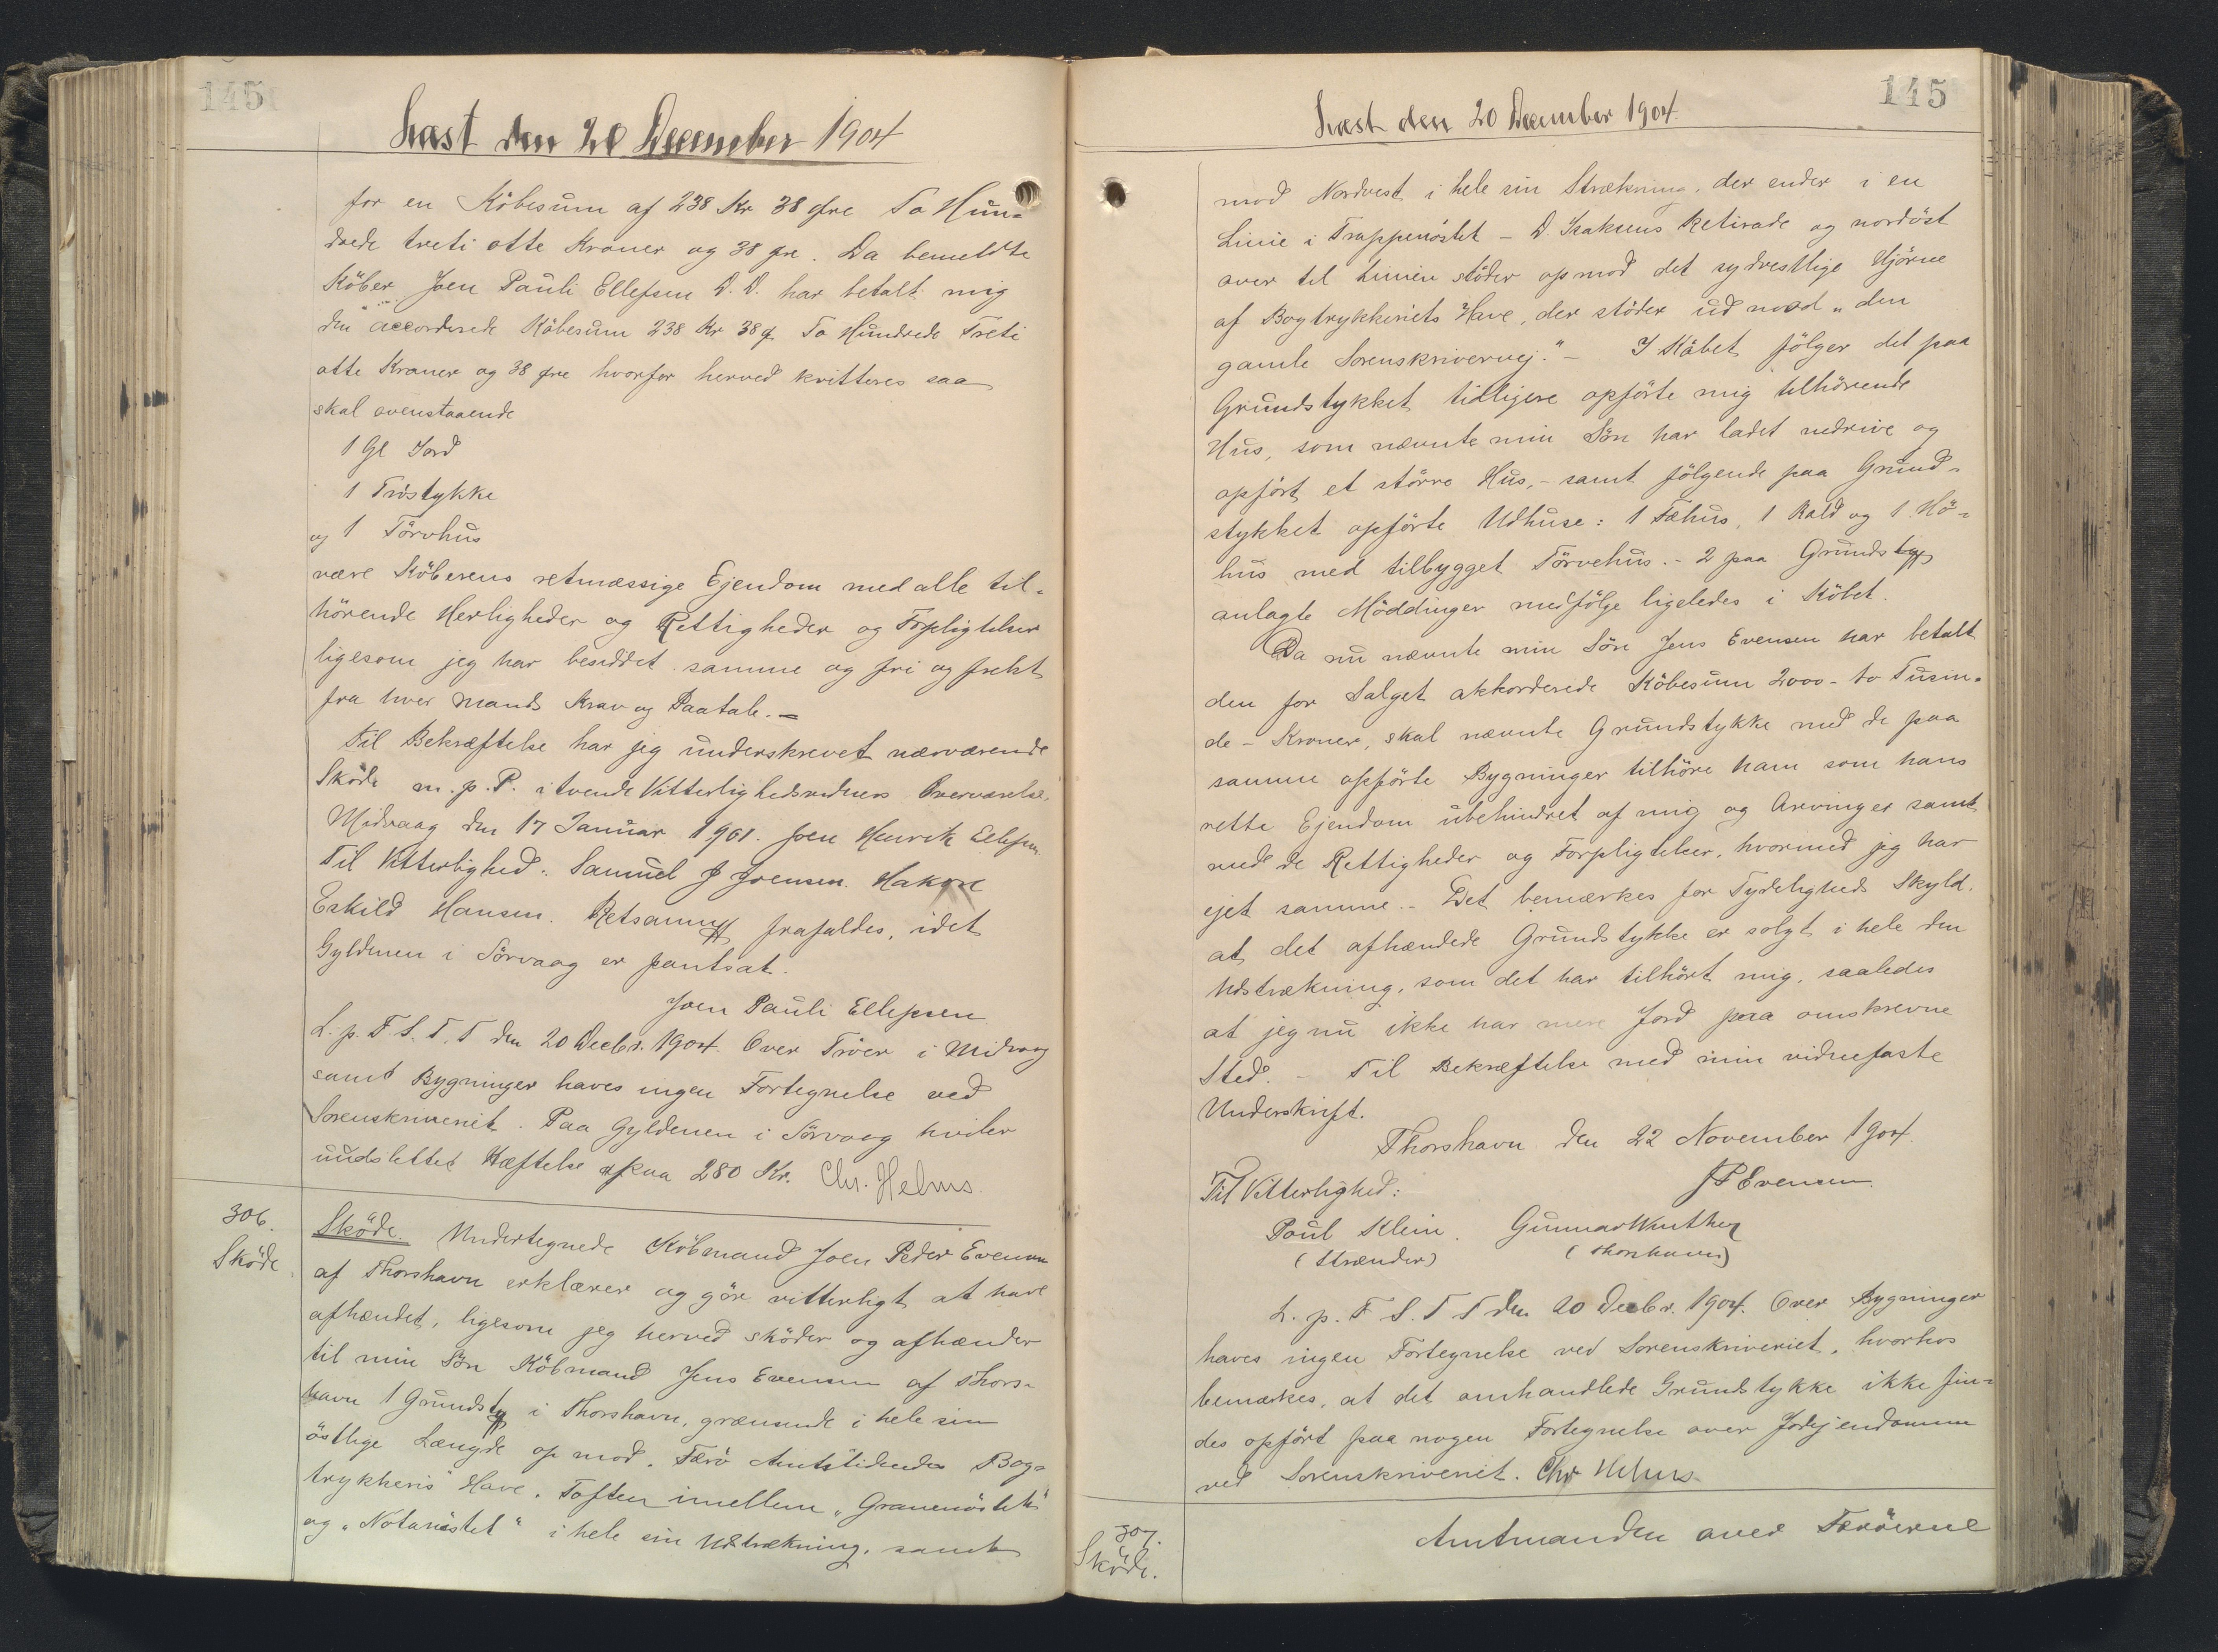 145
Læst den 20 December 1904
for en Köbesum af 238 Kr 38 Øre To Hun-
drede treti otte Kroner og 38 Øre. Da bemeldte
Köber Joen Pauli Ellefsen D.D. har betalt mig
den accorderede Köbesum 238 Kr 38 Ø To Hundrede Treti
otte Kroner og 38 Øre hvorfor herved kvitteres saa
skal ovenstaaende
1 Gl Jord
1 Tröstykke
og 1 Törvhus
være Köberens retmæssige Ejendom med alle til-
hörende Herligheder og Rettigheder og Forpligtelser
ligesom jeg har besiddet samme og fri og frelst
fra hver Mands Krav og Paatale. -
Til Bekræftelse har jeg underskrevet nærværende
Sköde m. p. P. i tvende Vitterlighedsvidners Overværelse.
Midvaag den 17 Januar 1901. Joen Henrik Ellefsen
Til Vitterlighed: Samuel J Joensen. Hakon
Eskild Hansen. Retsanm frafaldes, idet
Gyldenen i Sörvaag er pantsat.
Joen Pauli Ellefsen
L. p. F. S. T. T den 20 Decbr. 1904. Over Tröer i Midvaag
samt Bygninger haves ingen Fortegnelse ved
Sorenskriveriet. Paa Gyldenen i Sörvaag hviler
uudslettet Hæftelse paa 280 Kr. Chr. Helms.
306.
Sköde
Sköde. Undertegnede Köbmand Joen Peder Evensen
af Thorshavn erklærer og gör vitterligt at have
afhændet, ligesom jeg herved sköder og afhænder
til min Sön Köbmand Jens Evensen af Thors-
havn 1 Grundst i Thorshavn, grænsende i hele sin
östlige Længde op mod. Færö Amtstidendes Bog-
trykkeris Have. Toften imellem "Gravenöstet"
og "Notanöstet" i hele sin Udstrækning. samt
145
Læst den 20 December 1904.
mod Nordvest i hele sin Strækning, der ender i en
Linie i Trappenöstet - D. Isaksens Retirade og nordöst
over til Linien stöder op mod det sydvestlige Hjörne
af Bogtrykkeriets Have, der stöder ud mod "den
gamle Sorenskrivervej." - I Köbet fölger det paa
Grundstykket tidligere opförte mig tilhörende
Hus, som nævnte min Sön har ladet nedrive og
opfört et större Hus, - samt fölgende paa Grund-
stykket opförte Udhuse: 1 Fæhus, 1 Kald og 1 Hö-
hus med tilbygget Törvehus. - 2 paa Grundst
anlagte Möddinger medfölge ligeledes i Köbet.
Da nu nævnte min Sön Jens Evensen har betalt
den for Salget akkorderede Köbesum 2000 - to Tusin-
de - Kroner, skal nævnte Grundstykke med de paa
samme opförte Bygninger tilhöre ham som hans
rette Ejendom ubehindret af mig og Arvinger samt
med de Rettigheder og Forpligtelser, hvormed jeg har
ejet samme. - Det bemærkes for Tydeligheds Skyld.
at det afhændede Grundstykke er solgt i hele den
Udstrækning, som det har tilhört mig, saaledes
at jeg nu ikke har mere Jord paa omskrevne
Sted. - Til Bekræftelse med min vidnefaste
Underskrift.
Thorshavn den 22 November 1904.
JPEvensen.
Til Vitterlighed:
Poul Klein. Gunnar Winther
(Strænder) (Thorshavn)
L. p. F S. T T den 20 Decbr. 1904. Over Bygninger
haves ingen Fortegnelse ved Sorenskriveriet, hvorhos
bemærkes, at det omhandlede Grundstykke ikke fin-
des opfört paa nogen Fortegnelse over Jordejendomme
ved Sorenskriveriet. Chr Helms
307.
Sköde.
Amtmanden over Færöerne